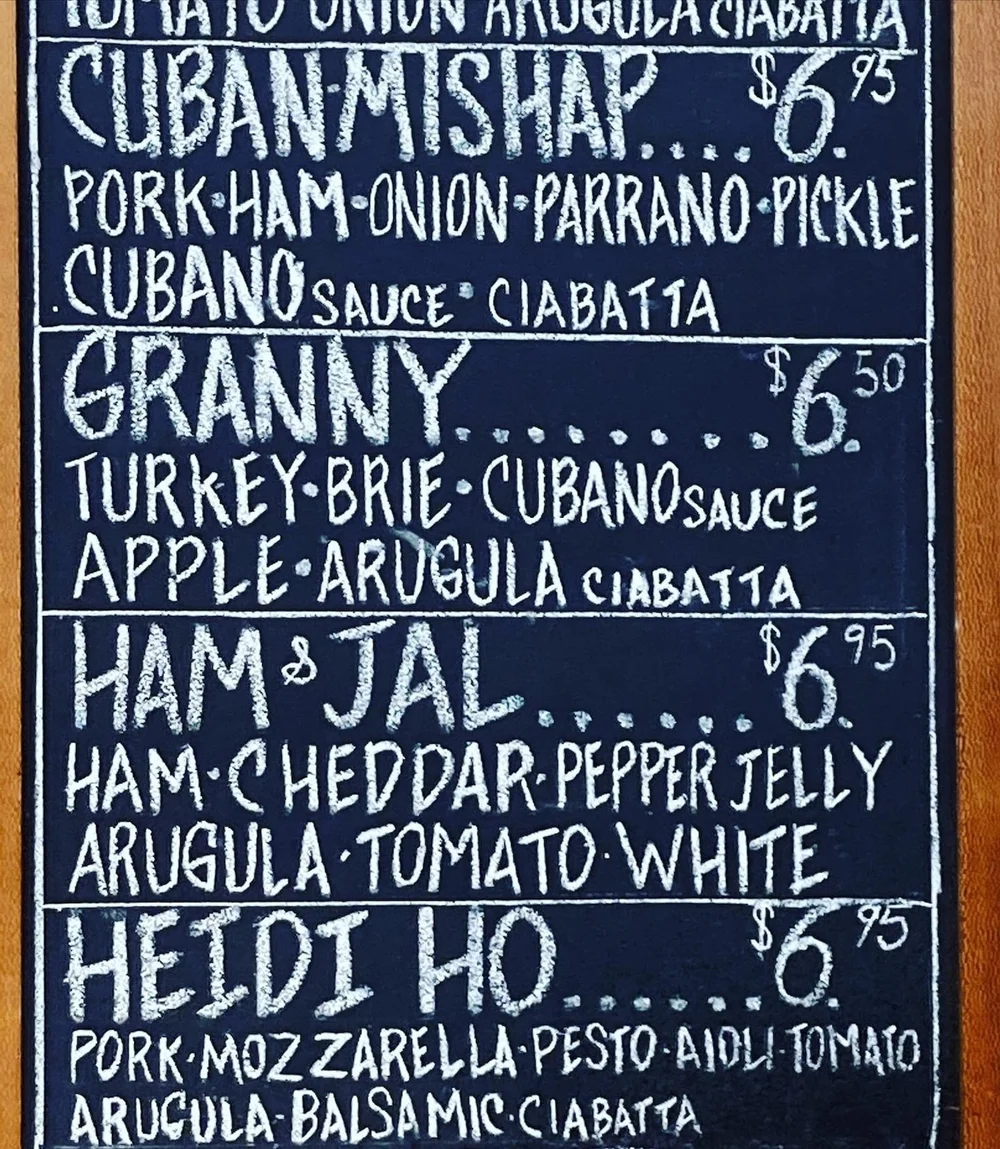 TOMATO ONION ARUGULA CIABATTA
CUBAN·MISHAP.... $6.95
PORK·HAM·ONION·PARRANO·PICKLE
CUBANO SAUCE · CIABATTA
GRANNY........ $6.50
TURKEY·BRIE·CUBANO SAUCE
APPLE·ARUGULA CIABATTA
HAM & JAL...... $6.95
HAM·CHEDDAR·PEPPER JELLY
ARUGULA·TOMATO·WHITE
HEIDI HO...... $6.95
PORK·MOZZARELLA·PESTO·AIOLI·TOMATO
ARUGULA·BALSAMIC·CIABATTA